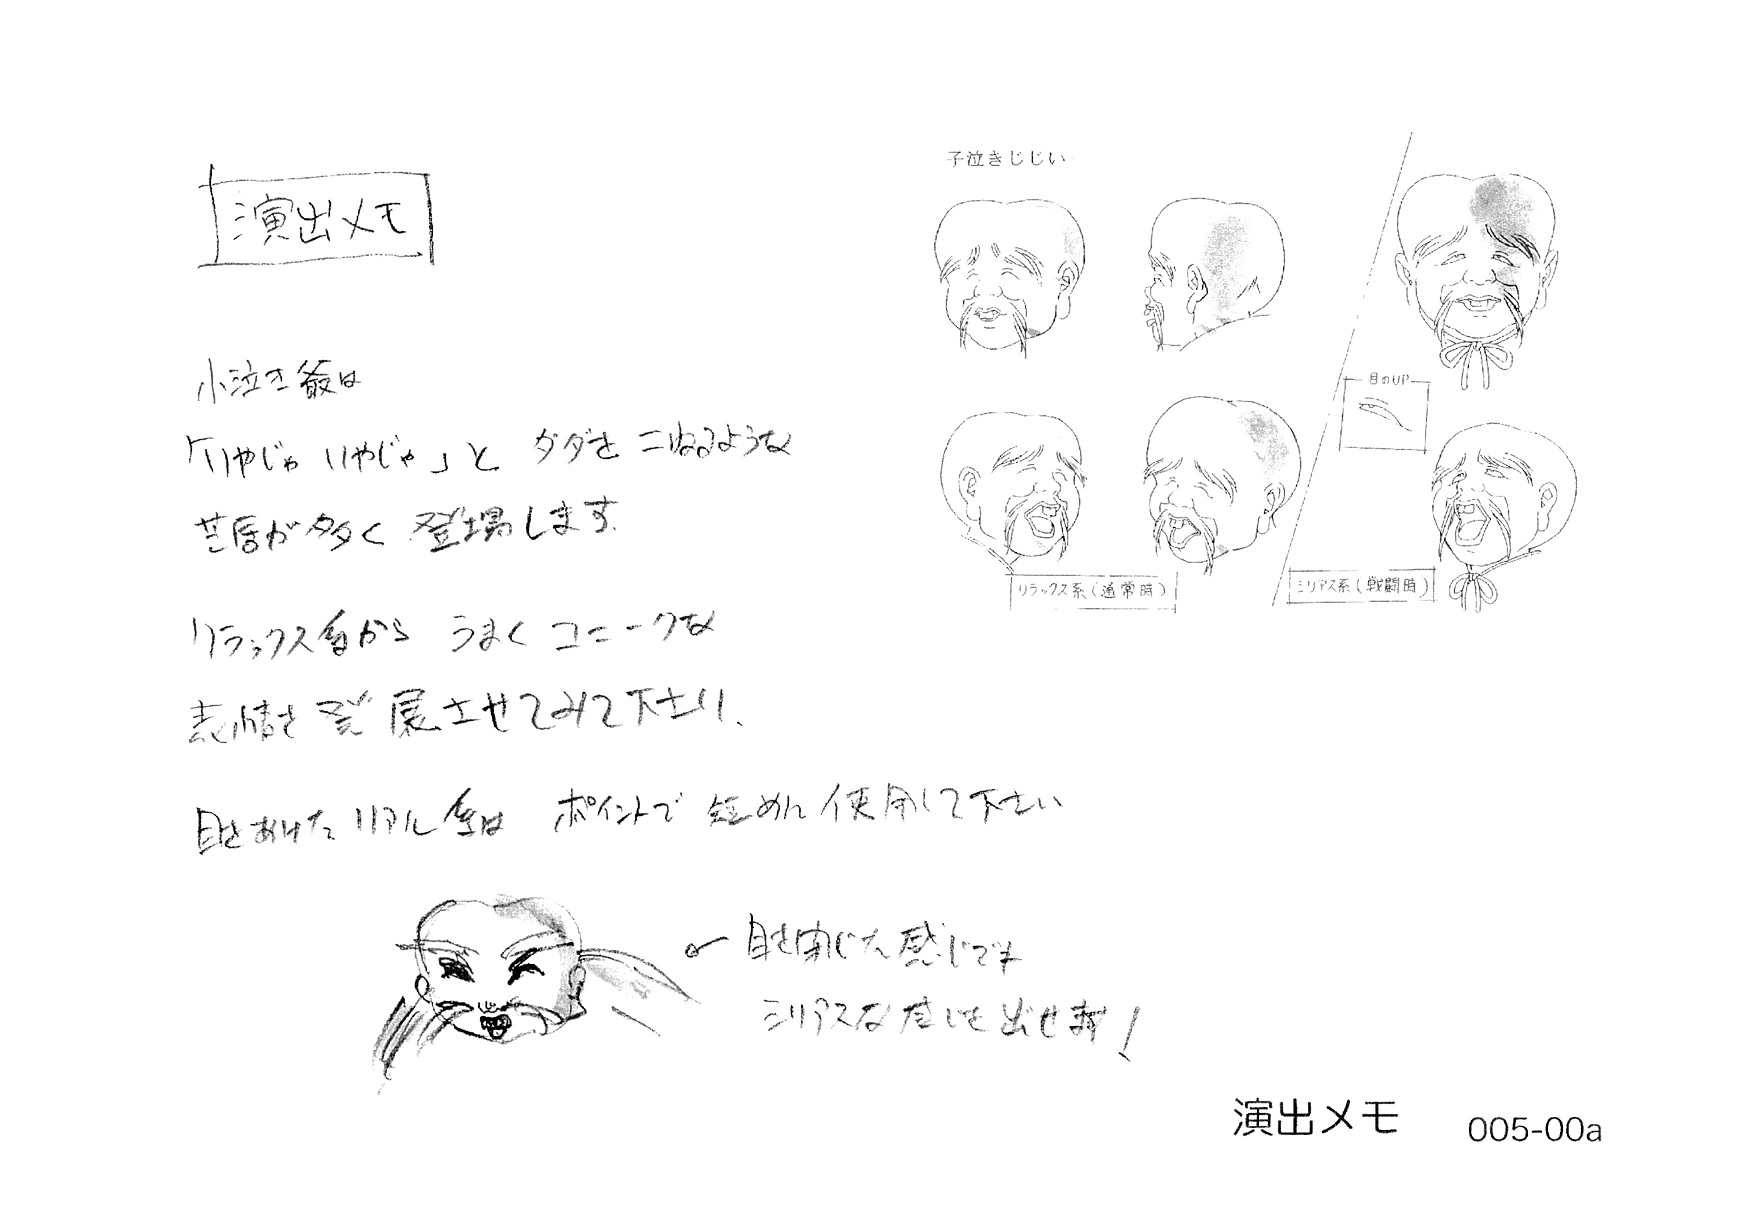 演出メモ
小泣き爺は
「いやじゃ いやじゃ」と ダダを こねるような
芝居が多く 登場します。
リラックス系から うまく コミークな
表情を 発展させてみて下さい、
目をあけた リアル系は ポイントで 短めに 使用して下さい
目を閉じた感じでも
シリアスな感じを 出せます!
子泣きじじい
目のUP
リラックス系(通常時)
シリアス系(戦闘時)
演出メモ 005-00a